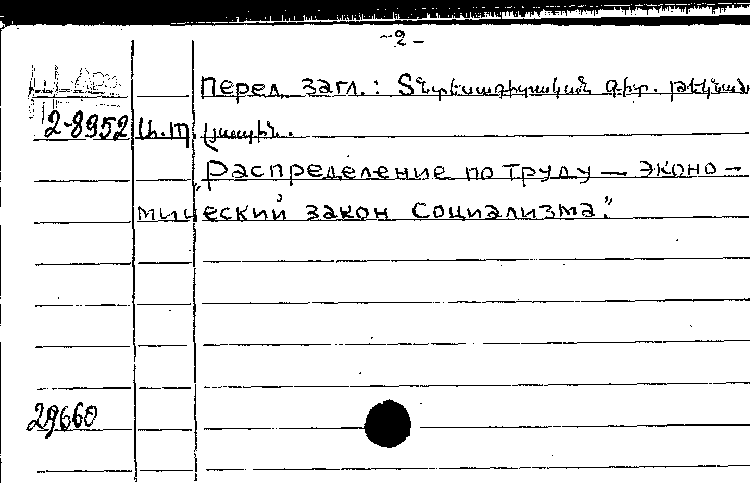 -2-
Перед загл.: Տնտեսագիտական գիտ. թեկնած
2-8952 Ս.Պ.
"Распределение по труду — эконо-
мический закон социализма."
29660